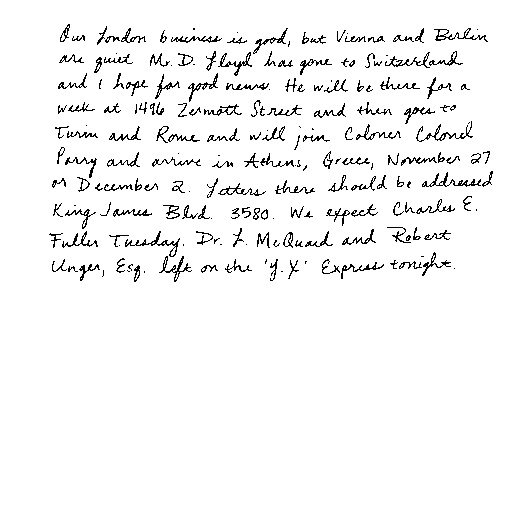 Our London business is good, but Vienna and Berlin
are quiet Mr. D. Lloyd has gone to Switzerland
and I hope for good news. He will be there for a
week at 1496 Zermott Street and then goes to
Turin and Rome and will join Coloner Colonel
Parry and arrive in Athens, Greece, November 27
or December 2. Letters there should be addressed
King James Blvd. 3580. We expect Charles E.
Fuller Tuesday. Dr. L. McQuaid and Robert
Unger, Esq. left on the 'Y.X' Express tonight.